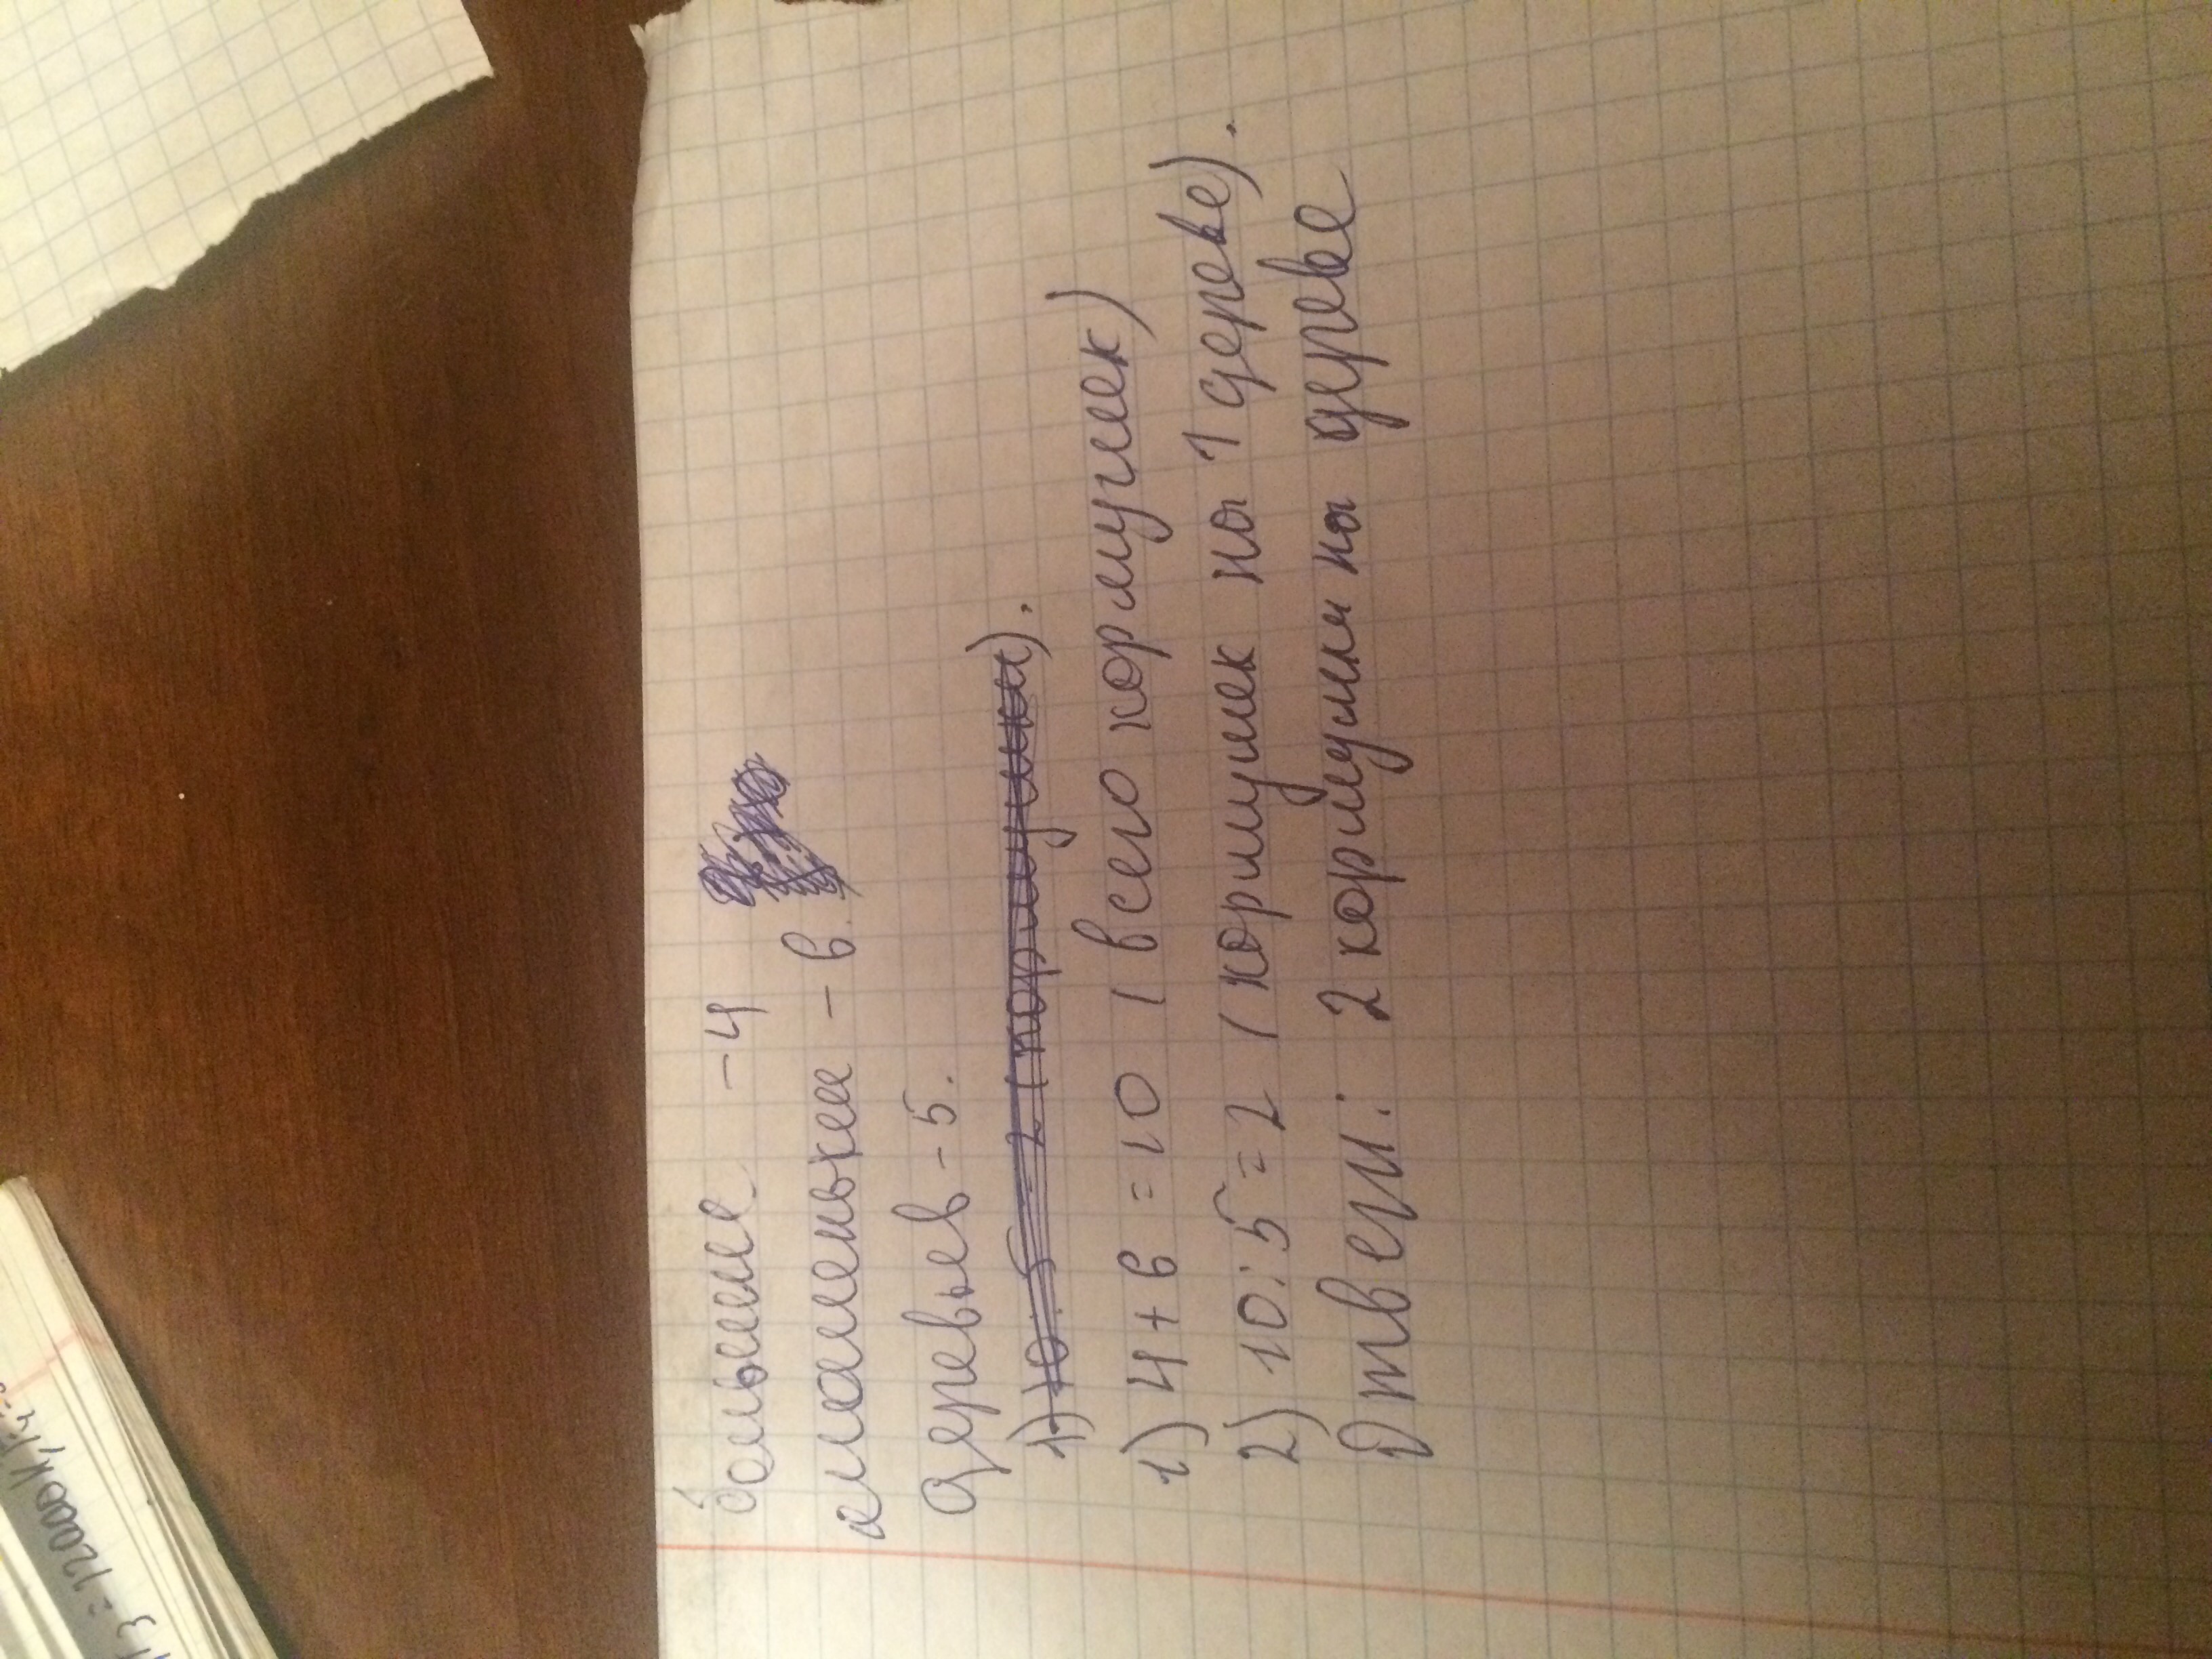 большие - 4
маленькие - 6.
деревьев - 5.
1) 10:5 = 2 (кормушки).
1) 4+6 = 10 (всего кормушек)
2) 10:5 = 2 (кормушек на 1 дереве).
Ответ: 2 кормушки на дереве
13 = 12000